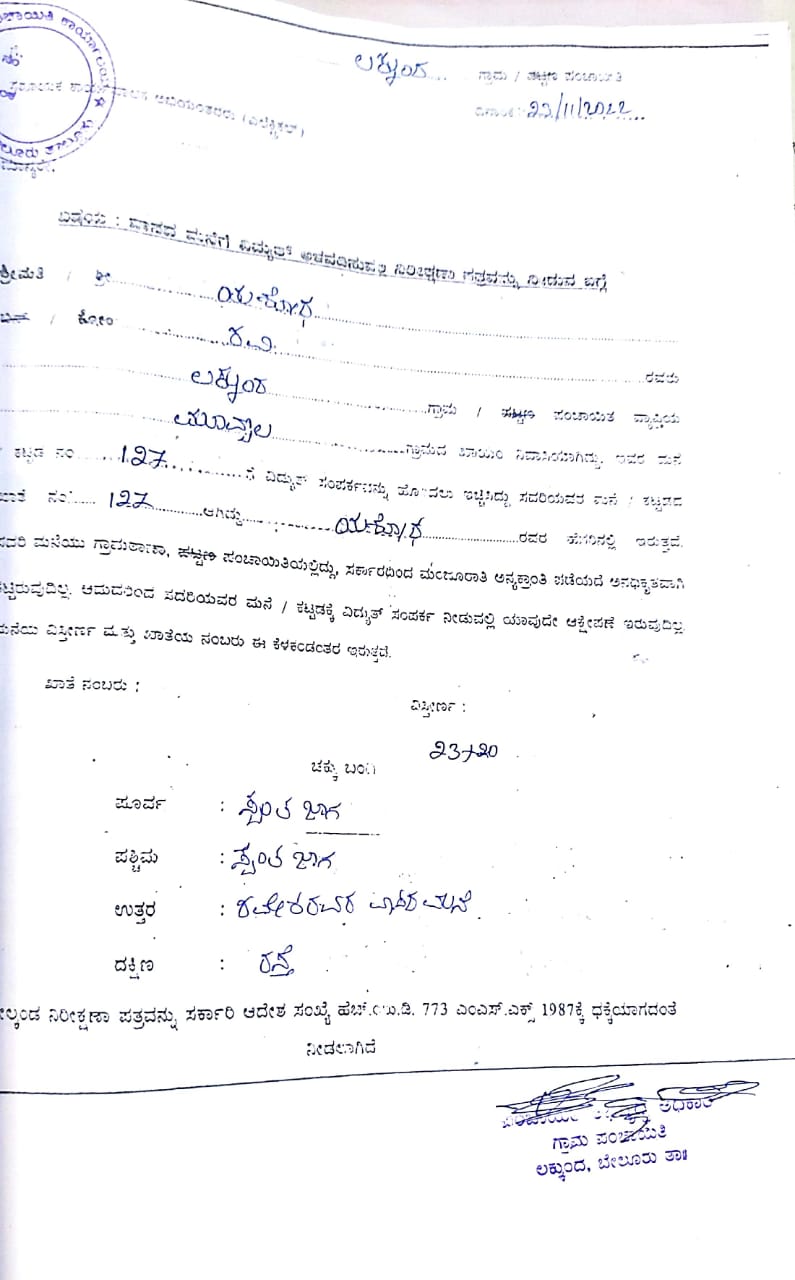 ಲಕ್ಕುಂದ ಗ್ರಾಮ / ಪಟ್ಟಣ ಪಂಚಾಯಿತಿ
ದಿನಾಂಕ: 22/11/2022
ಅಭಿಯಂತರರು (ಎಲೆಕ್ಟ್ರಿಕಲ್)
ಮಾನ್ಯರೇ,
ವಿಷಯ : ವಾಸದ ಮನೆಗೆ ವಿದ್ಯುತ್ ಅಳವಡಿಸುವಲ್ಲಿ ನಿರೀಕ್ಷಣಾ ಪತ್ರವನ್ನು ನೀಡುವ ಬಗ್ಗೆ
ಶ್ರೀಮತಿ / ಶ್ರೀ ಯಶೋಧ
ಬಿನ್ / ಕೋಂ ರವಿ ರವರು
ಲಕ್ಕುಂದ ಗ್ರಾಮ / ಪಟ್ಟಣ ಪಂಚಾಯಿತ ವ್ಯಾಪ್ತಿಯ
ಗ್ರಾಮದ ಖಾಯಂ ನಿವಾಸಿಯಾಗಿದ್ದು, ಇವರ ಮನೆ
/ ಕಟ್ಟಡ ನಂ 127 ಗೆ ವಿದ್ಯುತ್ ಸಂಪರ್ಕವನ್ನು ಹೊಂದಲು ಇಚ್ಛಿಸಿದ್ದು ಸದರಿಯವರ ಮನೆ / ಕಟ್ಟಡದ
ಖಾತೆ ನಂ 127 ಆಗಿದ್ದು ಯಶೋಧ ರವರ ಹೆಸರಿನಲ್ಲಿ ಇರುತ್ತದೆ.
ಸದರಿ ಮನೆಯು ಗ್ರಾಮಠಾಣಾ, ಪಟ್ಟಣ ಪಂಚಾಯಿತಿಯಲ್ಲಿದ್ದು, ಸರ್ಕಾರದಿಂದ ಮಂಜೂರಾತಿ ಅನ್ಯಕ್ರಾಂತಿ ಪಡೆಯದೆ ಅನಧಿಕೃತವಾಗಿ
ಕಟ್ಟಿರುವುದಿಲ್ಲ. ಆದುದರಿಂದ ಸದರಿಯವರ ಮನೆ / ಕಟ್ಟಡಕ್ಕೆ ವಿದ್ಯುತ್ ಸಂಪರ್ಕ ನೀಡುವಲ್ಲಿ ಯಾವುದೇ ಆಕ್ಷೇಪಣೆ ಇರುವುದಿಲ್ಲ.
ಮನೆಯ ವಿಸ್ತೀರ್ಣ ಮತ್ತು ಖಾತೆಯ ನಂಬರು ಈ ಕೆಳಕಂಡಂತರ ಇರುತ್ತದೆ.
ಖಾತೆ ನಂಬರು :
ವಿಸ್ತೀರ್ಣ :
23+20
ಚಕ್ಕು ಬಂದಿ
ಪೂರ್ವ : ಸ್ವಂತ ಜಾಗ
ಪಶ್ಚಿಮ : ಸ್ವಂತ ಜಾಗ
ಉತ್ತರ : ರಮೇಶರವರ ವಾಸದ ಮನೆ
ದಕ್ಷಿಣ : ರಸ್ತೆ
ಮೇಲ್ಕಂಡ ನಿರೀಕ್ಷಣಾ ಪತ್ರವನ್ನು ಸರ್ಕಾರಿ ಆದೇಶ ಸಂಖ್ಯೆ ಹೆಚ್.ಯು.ಡಿ. 773 ಎಂಎಸ್.ಎಕ್ಸ್ 1987ಕ್ಕೆ ಧಕ್ಕೆಯಾಗದಂತೆ
ನೀಡಲಾಗಿದೆ
ಗ್ರಾಮ ಪಂಚಾಯಿತಿ
ಲಕ್ಕುಂದ, ಬೇಲೂರು ತಾ॥